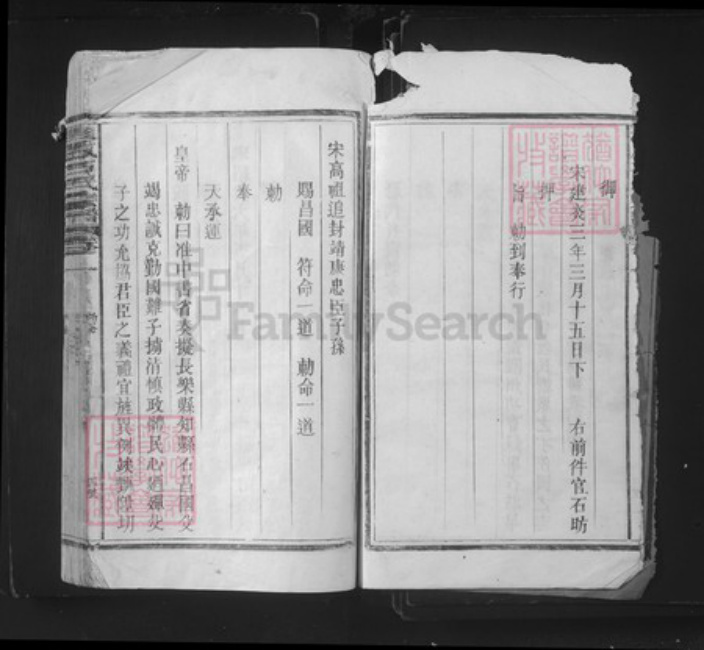 御
宋建炎三年三月十五日下 右前件官石昉
押
旨 勅到奉行
宋高祖追封靖康忠臣子孫
賜昌國 符命一道 勅命一道
勅
奉
天承運
皇帝 勅曰准中書省奏擬長樂縣知縣石昌國父
竭忠誠克勤國難子擄清慎政體民心
子之功允協君臣之義禮宜旌異
FamilySearch